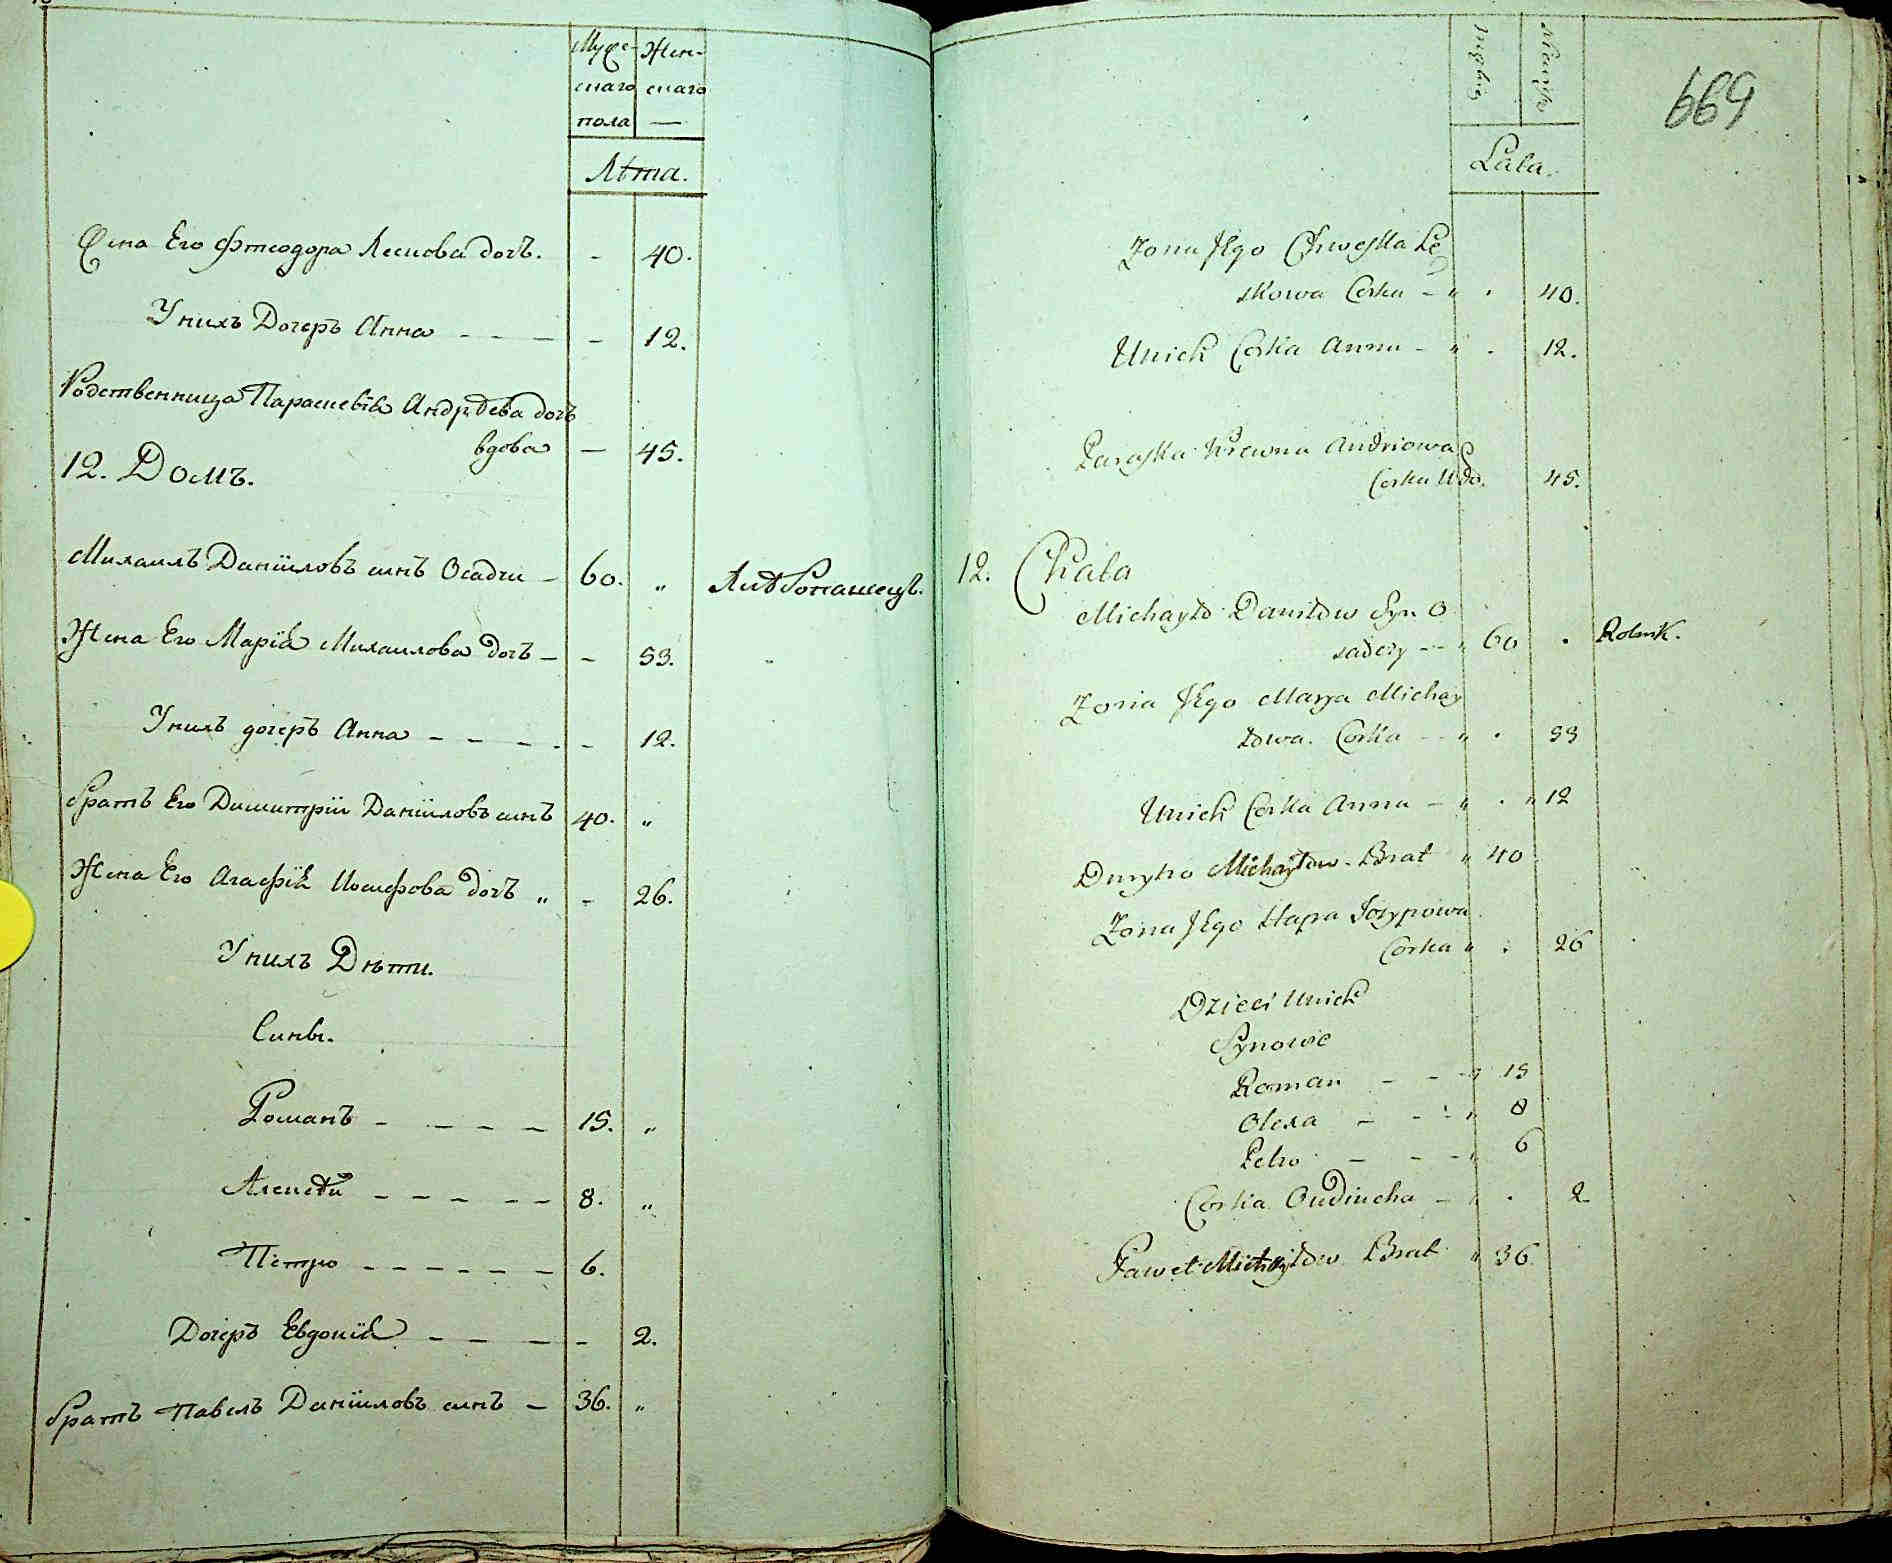 Муже- Жен-
скаго скаго
пола —
Лѣта.
Жена Его Фтеодора Лескова дочъ. - 40.
У нихъ Дочеръ Анна - - - - 12.
Родственница Параскевія Андрѣева дочъ
вдова — 45.
12. Домъ.
Михаилъ Даніиловъ синъ Осадчи - 60. „
Жена Его Марія Михаилова дочъ - - 53.
У нихъ дочеръ Анна - - - - - 12.
братъ Его Димитріи Даніиловъ синъ 40. „
Жена Его Агафія Иосифова дочъ „ - 26.
У нихъ Дѣти.
Сины.
Романъ - - - - - 15. „
Алексѣй - - - - - 8. „
Петро - - - - - - 6.
Дочеръ Евдокія - - - - - 2.
братъ Павелъ Даніиловъ синъ - 36. „
669
Lata.
Zona Jego Chweska Le
skowa Corka - „ . 40.
Unich Corka Anna - „ . 12.
Paraska Krewna Andriowa
Corka Wdo. 45.
12. Chata
Michayło Daniłow Syn O
sadczy - - „ 60 . Rolnik.
Zona Jego Marya Michay
łowa. Corka - - „ . 53
Unich Corka Anna - „ . „ 12
Dmytro Michayłow Brat „ 40
Zona Jego Hapa Jozypowa
Corka „ . 26
Dzieci Unich
Synowie
Roman - - - „ 15
Olexa - - - „ 8
Petro - - - „ 6
Corka Oudiucha - „ . 2
Paweł Michayłow Brat „ 36.